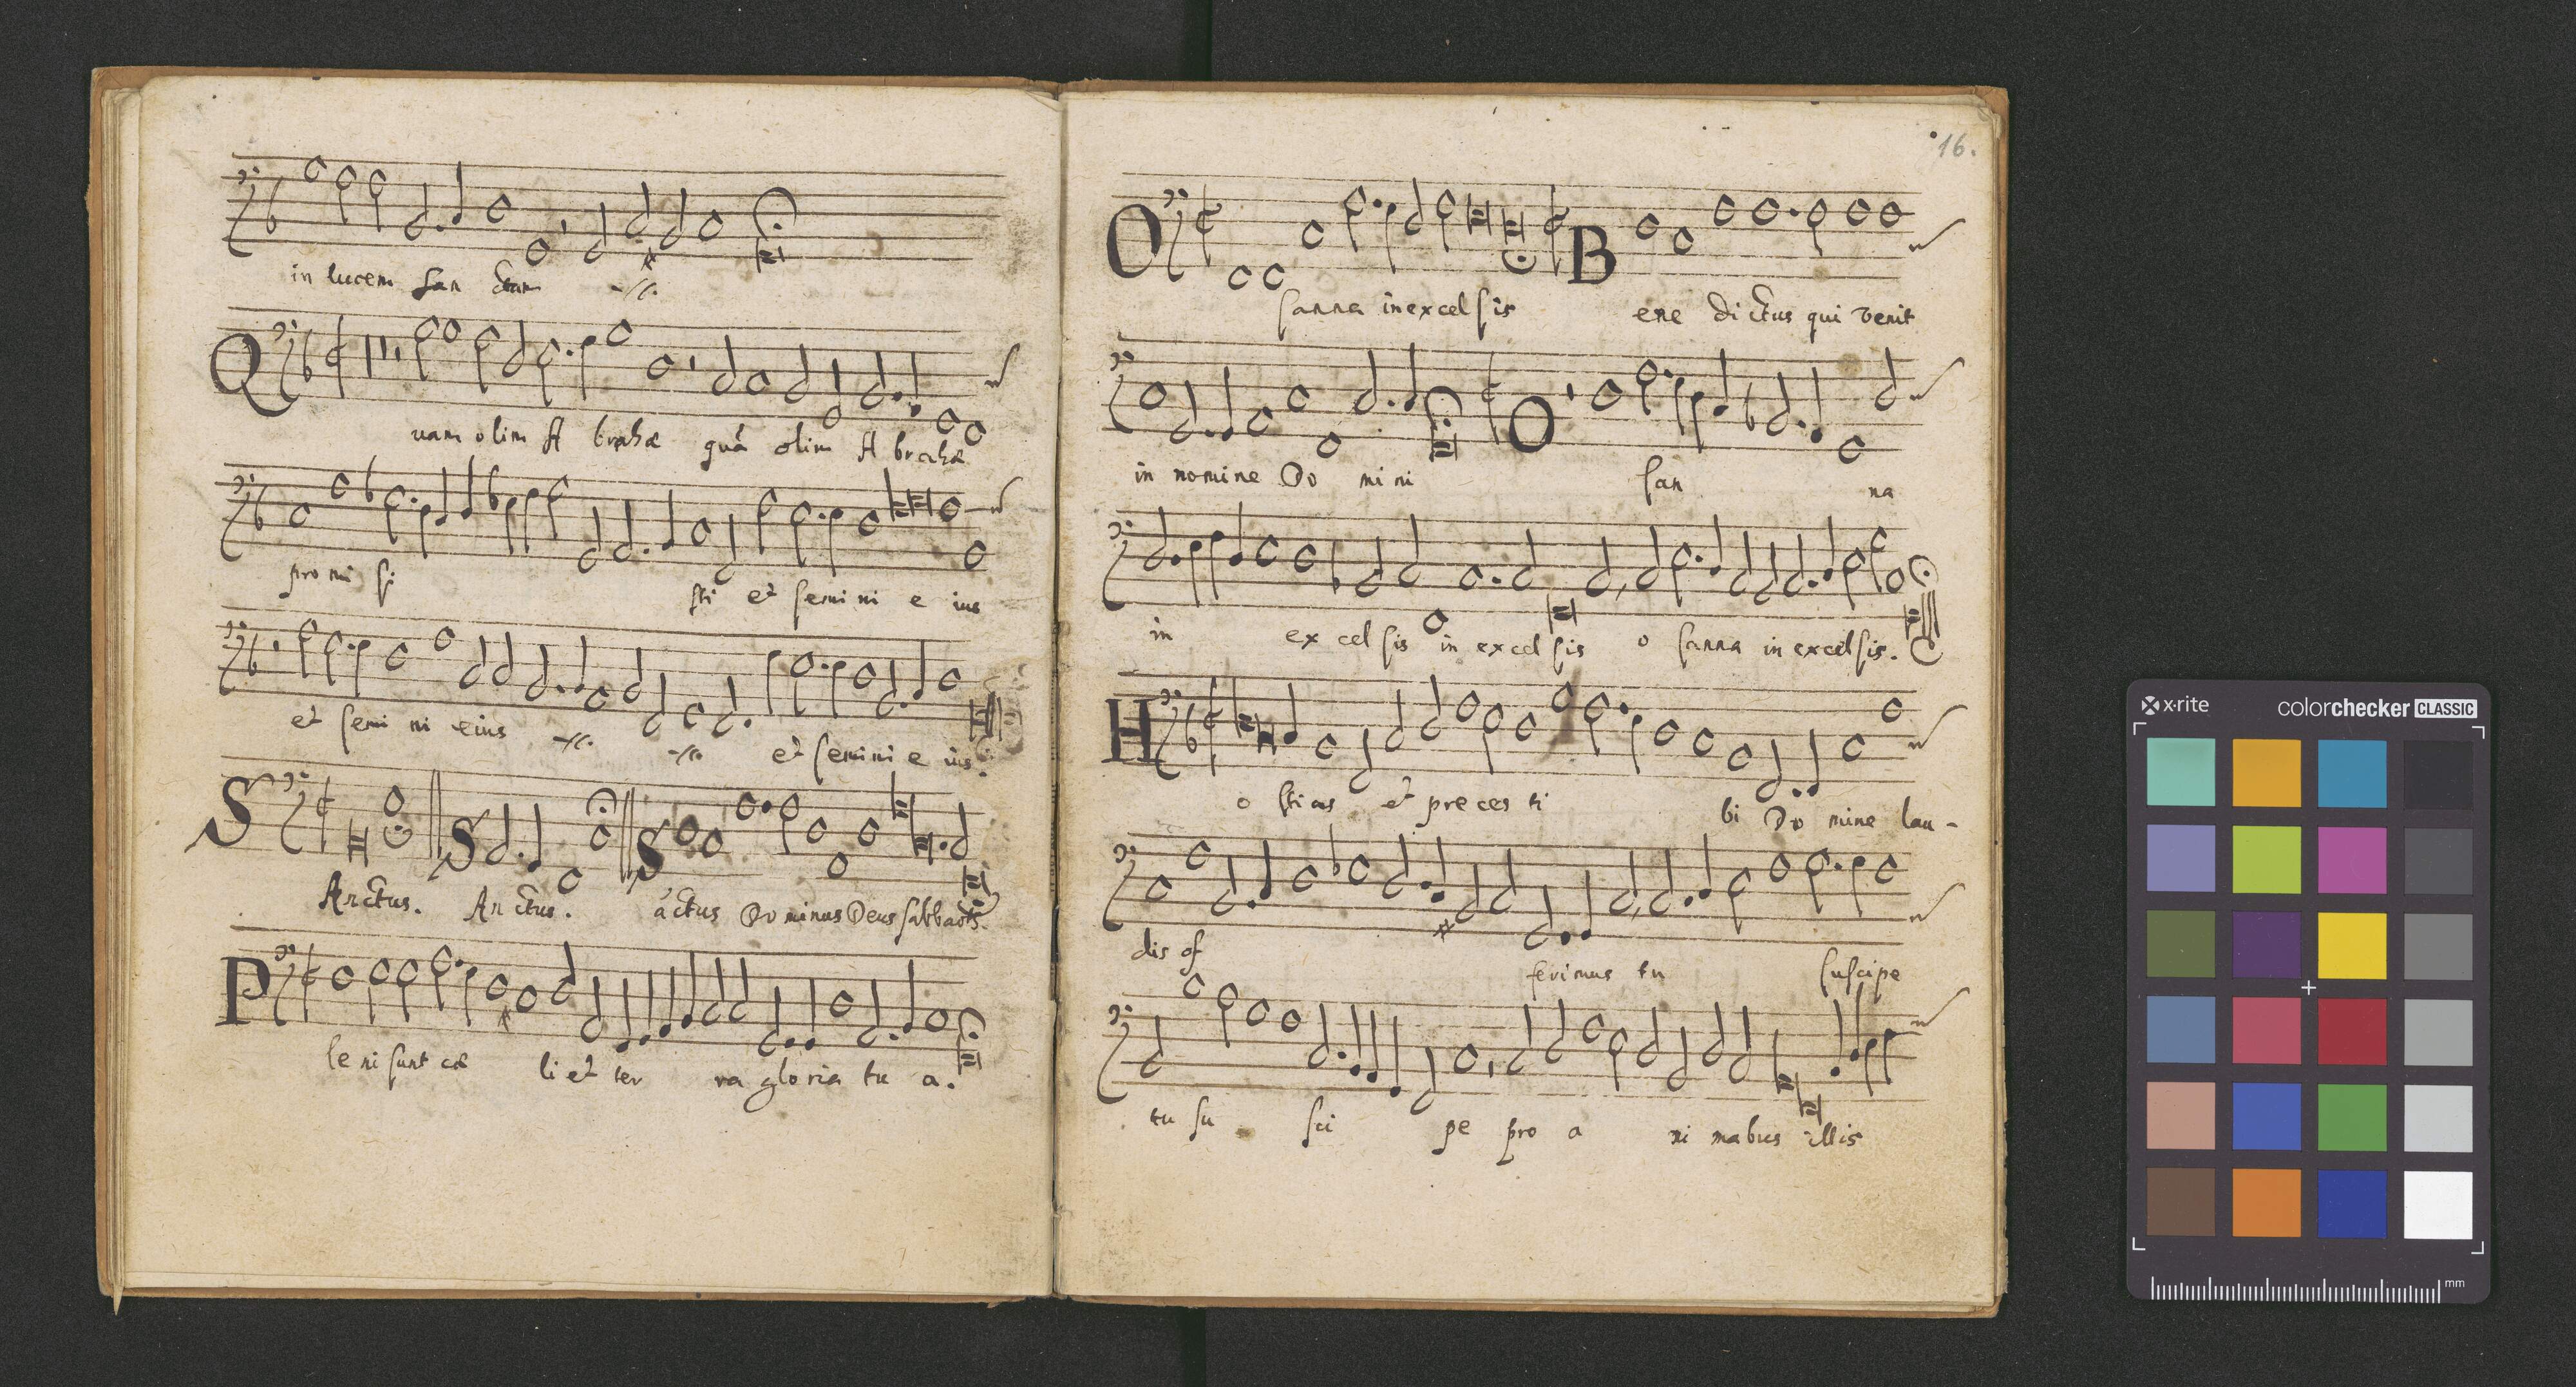 in lucem san ctam ·//·
Quam olim A brahæ quā olim A brahæ
promi si sti et semi ni e ius
et semi ni eius ·//· ·//· et semi ni e ius.
SAnctus. SAn ctus. Sāctus Do minus Deus sabbaoth.
Ple ni sunt cæ li et ter ra glo ria tu a.
16.
O sanna in excel sis Bene di ctus qui venit
in nomine Do mi ni O san na
in ex cel sis in excel sis o sanna in excelsis.
Ho stias et pre ces ti bi Do mine lau-
dis of ferimus tu suscipe
tu su sci pe pro a ni mabus illis
x-rite
colorchecker CLASSIC
mm